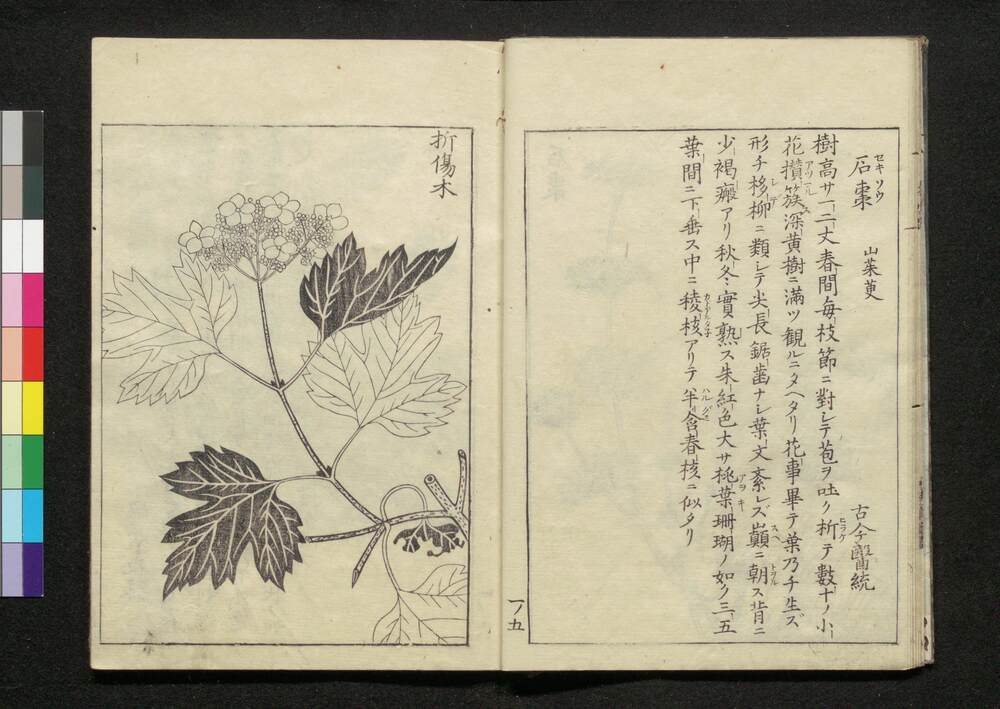 石棗 セキソウ 山茱萸 古今醫統
樹高サ一二丈春間毎枝節ニ對シテ苞ヲ吐ク析テ數十ノ小
花攅簇深黄樹ニ滿ツ観ルニタヘタリ花事畢テ葉乃チ生ズ
形チ栘柳ニ類シテ尖長鋸齒ナシ葉文紊レズ巓ニ朝ス背ニ
少褐瘢アリ秋冬實熟ス朱紅色大サ桃葉珊瑚ノ如ク三五
葉間ニ下垂ス中ニ稜核アリテ半含春核ニ似タリ
一ノ五
折傷木